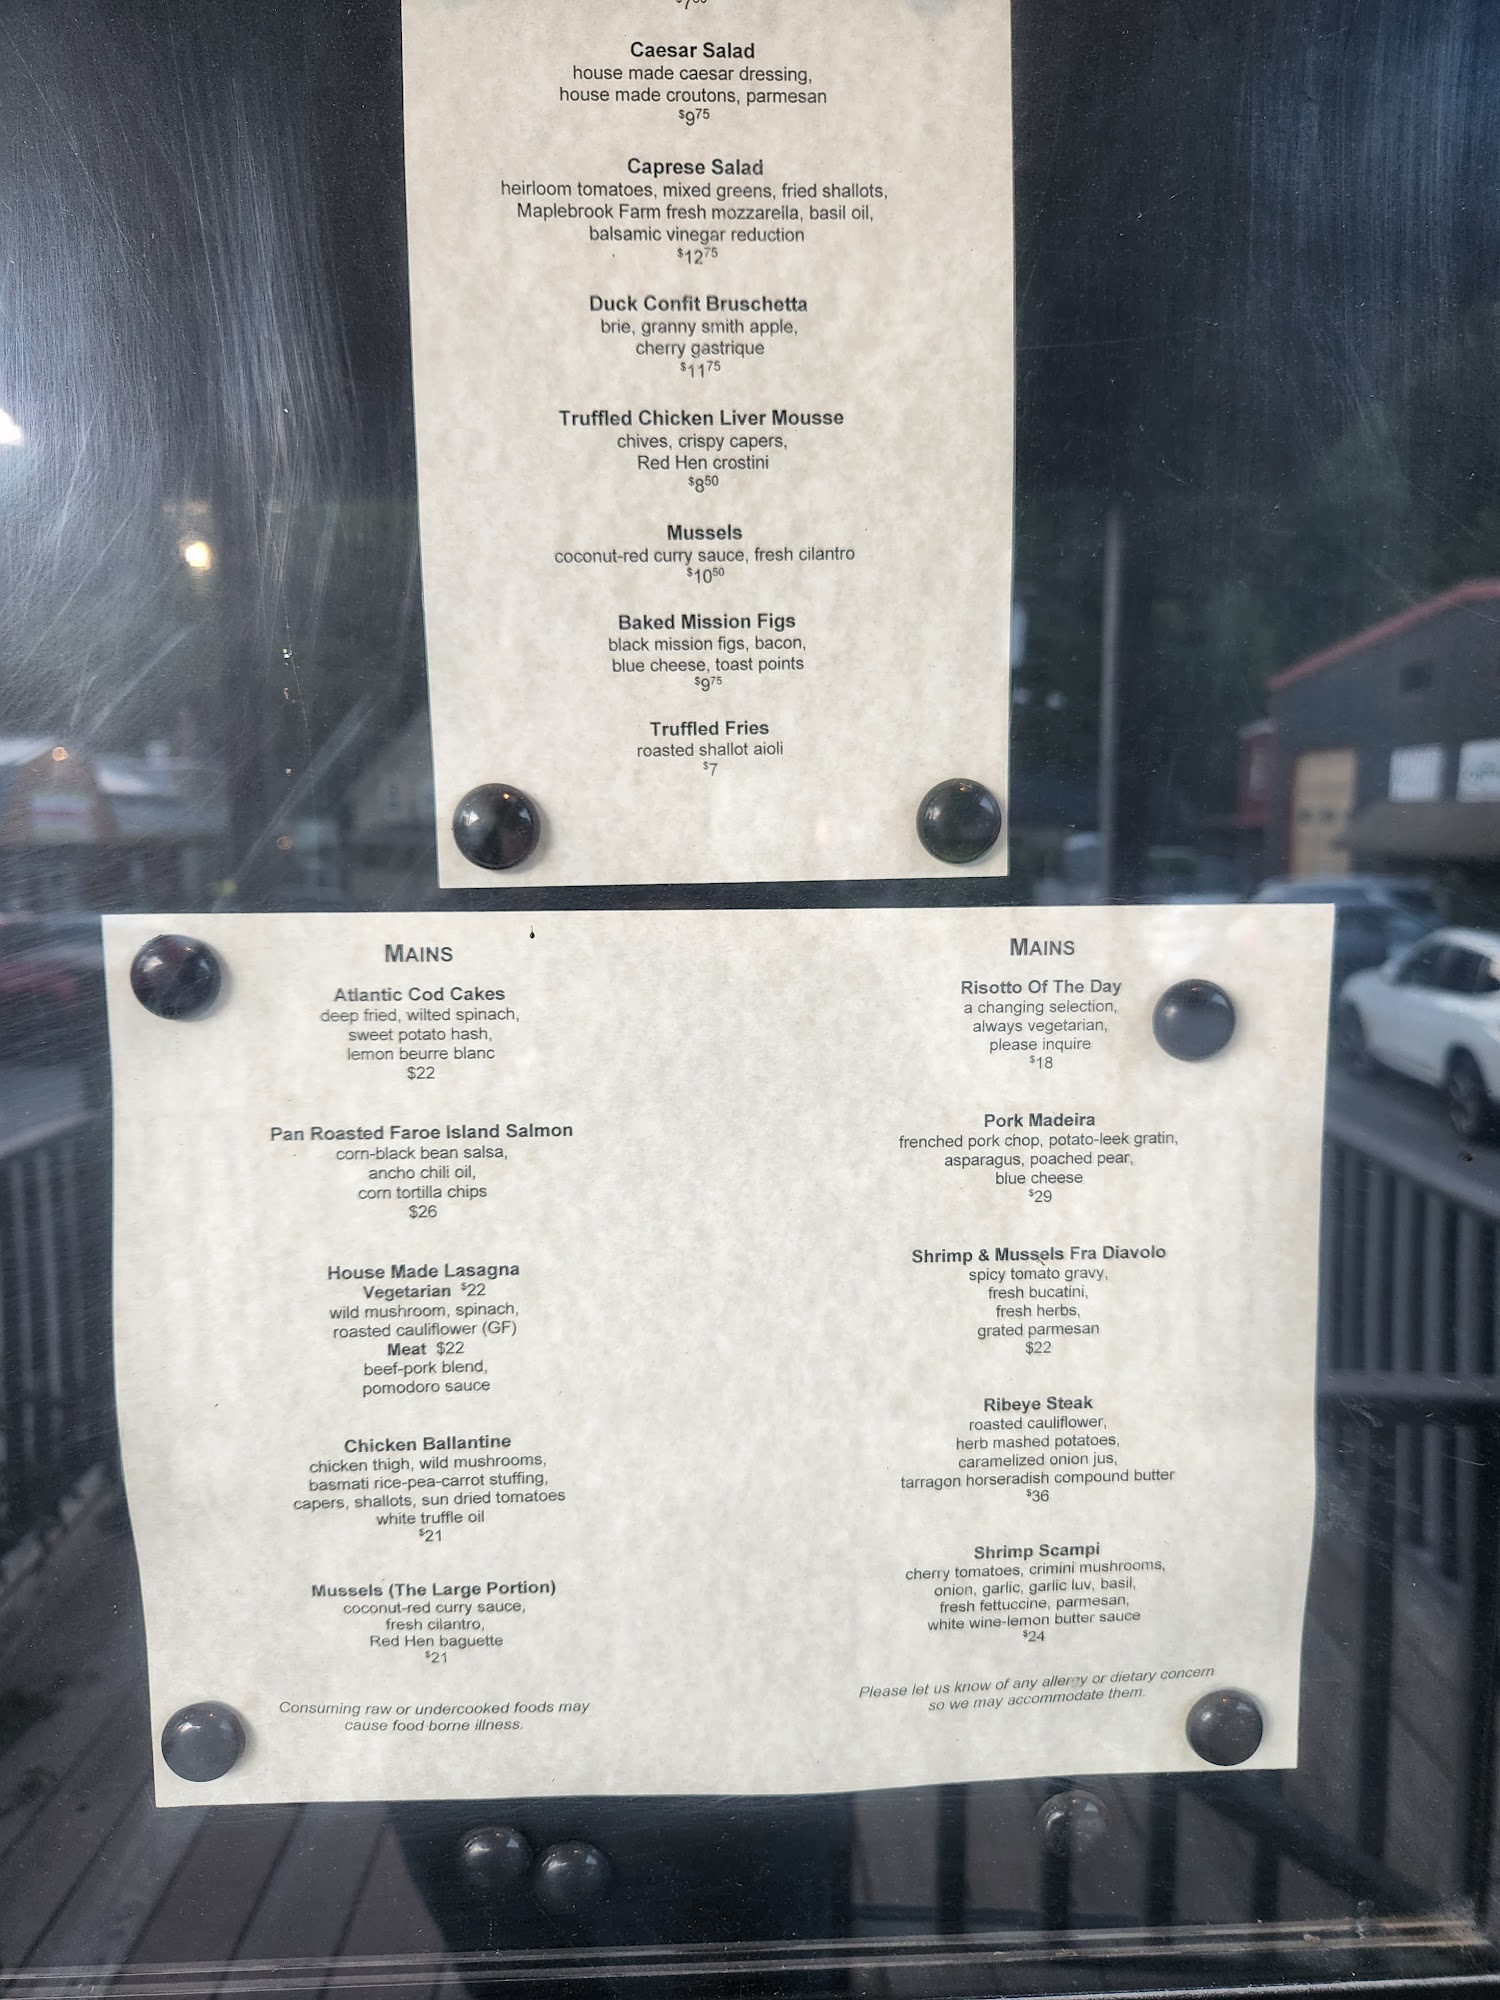 Caesar Salad
house made caesar dressing,
house made croutons, parmesan
$975
Caprese Salad
heirloom tomatoes, mixed greens, fried shallots,
Maplebrook Farm fresh mozzarella, basil oil,
balsamic vinegar reduction
$1275
Duck Confit Bruschetta
brie, granny smith apple,
cherry gastrique
$1175
Truffled Chicken Liver Mousse
chives, crispy capers,
Red Hen crostini
$850
Mussels
coconut-red curry sauce, fresh cilantro
$1050
Baked Mission Figs
black mission figs, bacon,
blue cheese, toast points
$975
Truffled Fries
roasted shallot aioli
$7
MAINS
Atlantic Cod Cakes
deep fried, wilted spinach,
sweet potato hash,
lemon beurre blanc
$22
Pan Roasted Faroe Island Salmon
corn-black bean salsa,
ancho chili oil,
corn tortilla chips
$26
House Made Lasagna
Vegetarian $22
wild mushroom, spinach,
roasted cauliflower (GF)
Meat $22
beef-pork blend,
pomodoro sauce
Chicken Ballantine
chicken thigh, wild mushrooms,
basmati rice-pea-carrot stuffing,
capers, shallots, sun dried tomatoes
white truffle oil
$21
Mussels (The Large Portion)
coconut-red curry sauce,
fresh cilantro,
Red Hen baguette
$21
Consuming raw or undercooked foods may
cause food borne illness.
MAINS
Risotto Of The Day
a changing selection,
always vegetarian,
please inquire
$18
Pork Madeira
frenched pork chop, potato-leek gratin,
asparagus, poached pear,
blue cheese
$29
Shrimp & Mussels Fra Diavolo
spicy tomato gravy,
fresh bucatini,
fresh herbs,
grated parmesan
$22
Ribeye Steak
roasted cauliflower,
herb mashed potatoes,
caramelized onion jus,
tarragon horseradish compound butter
$36
Shrimp Scampi
cherry tomatoes, crimini mushrooms,
onion, garlic, garlic luv, basil,
fresh fettuccine, parmesan,
white wine-lemon butter sauce
$24
Please let us know of any allergy or dietary concern
so we may accommodate them.